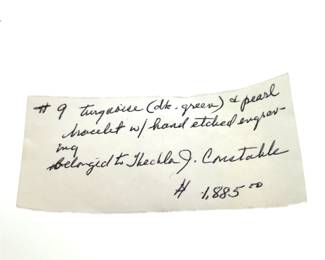 # 9 turquoise (dk. green) & pearl
bracelet w/ hand etched engrav-
ing
Belonged to Thechla J. Constable
# 1,885.00